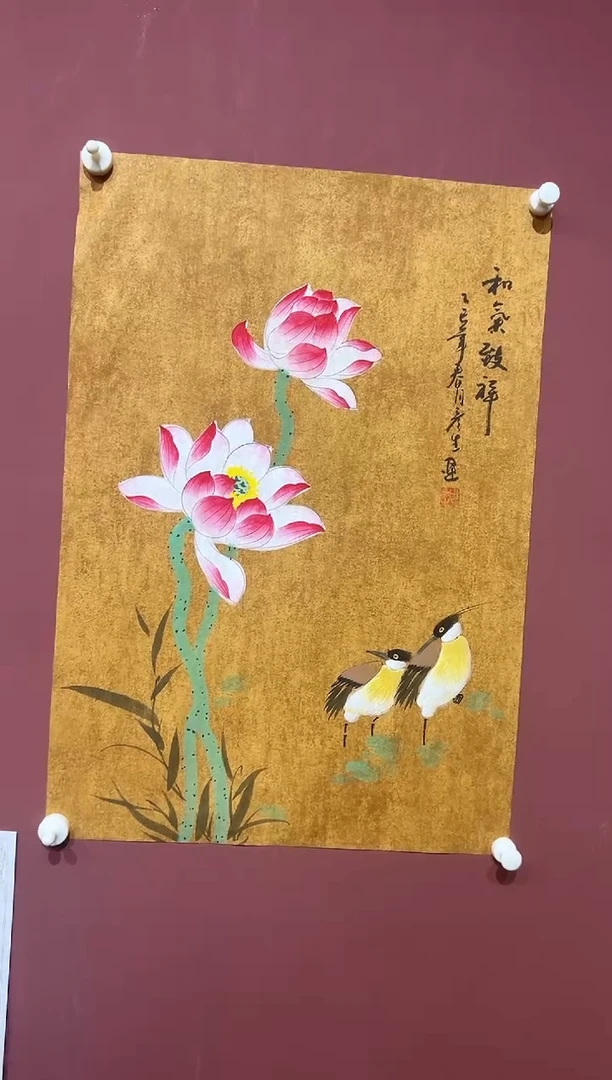 和氣致祥
乙巳年春月彦生畫